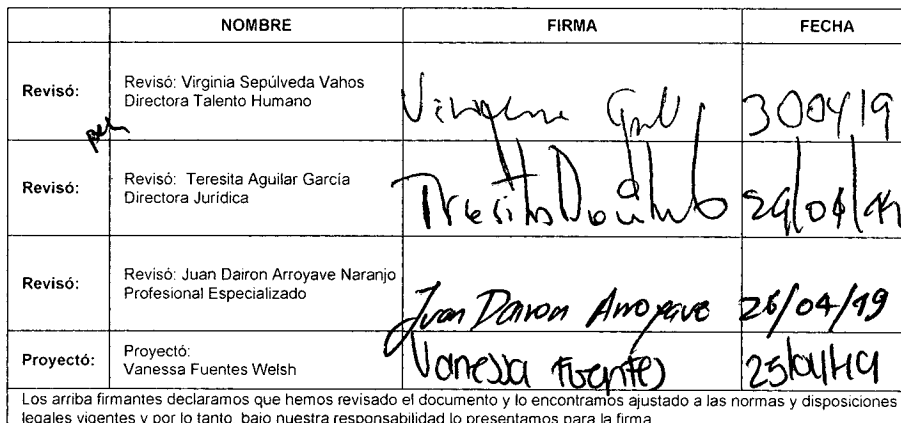 NOMBRE FIRMA FECHA
Revisó: Revisó: Virginia Sepúlveda Vahos
Directora Talento Humano
300419
Revisó: Revisó: Teresita Aguilar García
Directora Jurídica
Teresita 29/04/19
Revisó: Revisó: Juan Dairon Arroyave Naranjo
Profesional Especializado
Juan Dairon Arroyave 26/04/19
Proyectó: Proyectó:
Vanessa Fuentes Welsh
Vanessa Fuentes 25/04/19
Los arriba firmantes declaramos que hemos revisado el documento y lo encontramos ajustado a las normas y disposiciones
legales vigentes y por lo tanto, bajo nuestra responsabilidad lo presentamos para la firma.